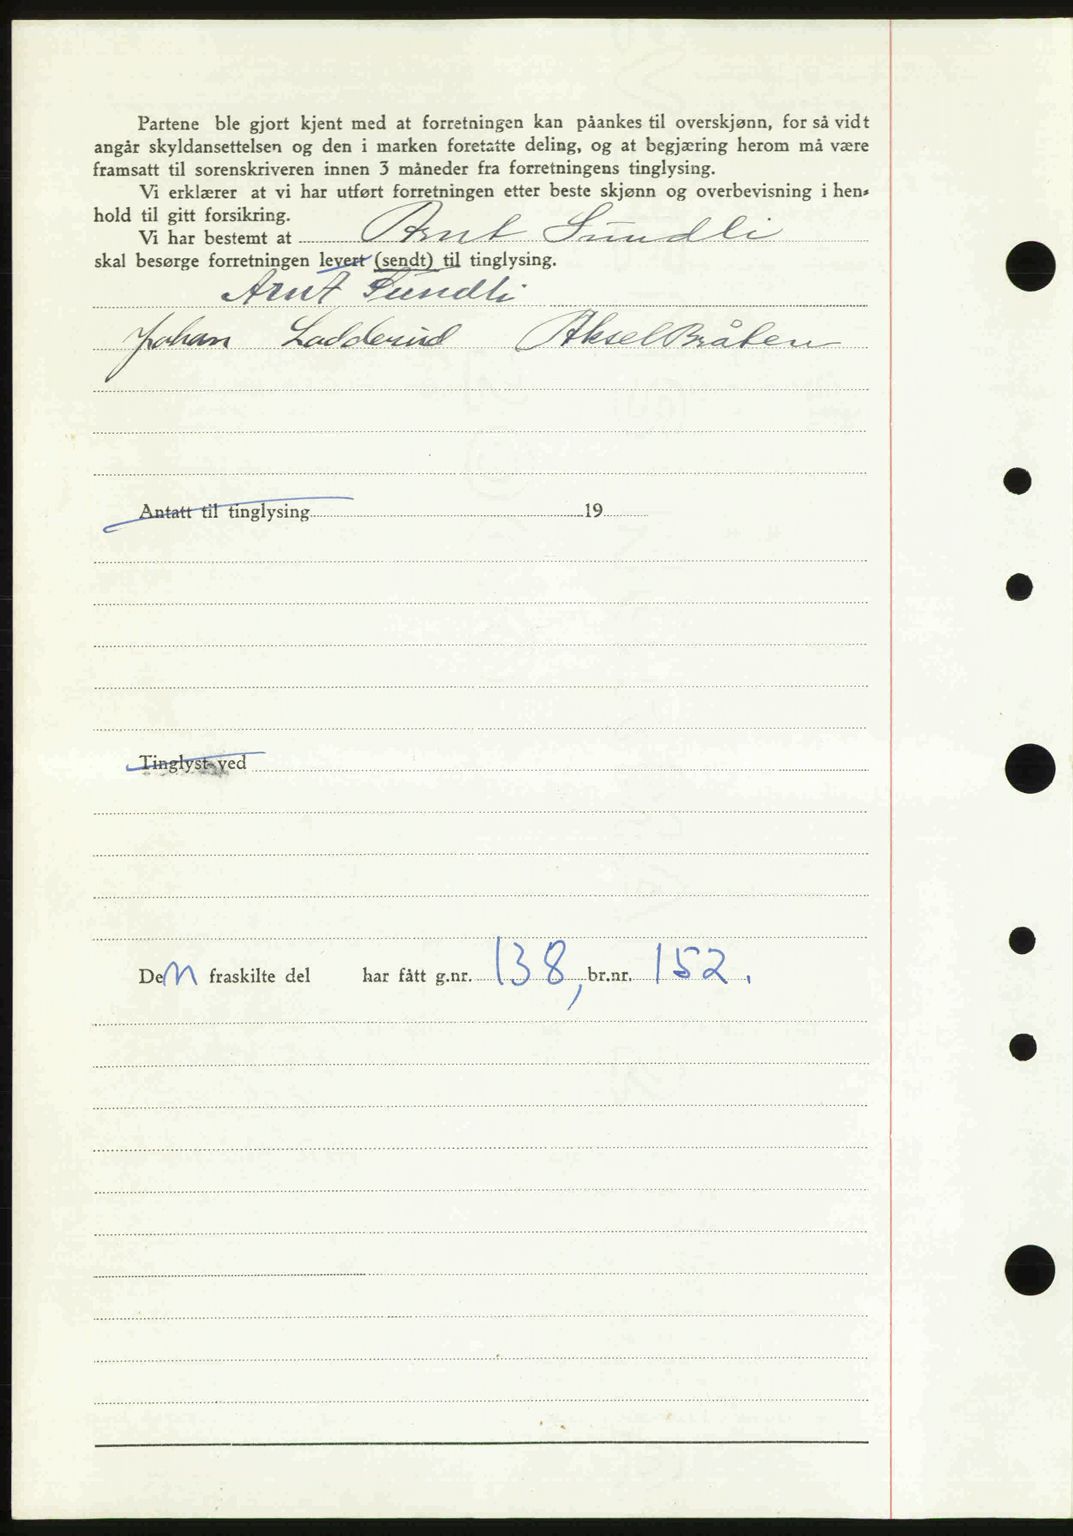 Partene ble gjort kjent med at forretningen kan påankes til overskjønn, for så vidt
angår skyldansettelsen og den i marken foretatte deling, og at begjæring herom må være
framsatt til sorenskriveren innen 3 måneder fra forretningens tinglysing.
Vi erklærer at vi har utført forretningen etter beste skjønn og overbevisning i hen-
hold til gitt forsikring.
Vi har bestemt at Arnt Sundli
skal besørge forretningen levert (sendt) til tinglysing.
Arnt Sundli
Johan Ladderud Aksel Bråten
Antatt til tinglysing 19
Tinglyst ved
Den fraskilte del har fått g.nr. 138, br.nr. 152.